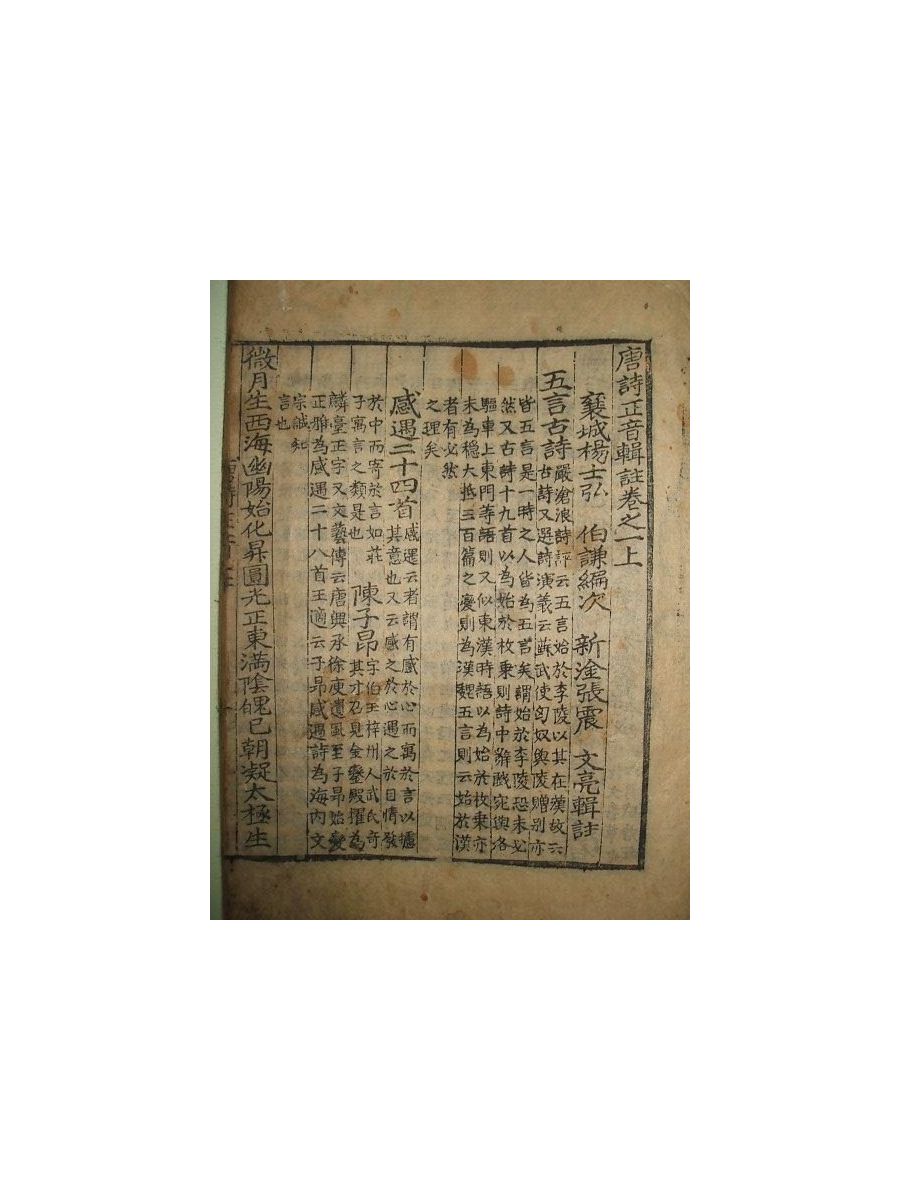 唐詩正音輯註卷之一上
襄城楊士弘 伯謙編次 新淦張震 文亮輯註
五言古詩
嚴滄浪詩評云五言始於李陵以其在漢故云
古詩又選詩演義云蘇武使匈奴與陵贈別亦
皆五言是一時之人皆為五言矣謂始於李陵恐未必
然又古詩十九首以為始於枚乗則詩中辭
驅車上東門等語則又似東漢時語以為始於枚乗亦
未為穩大抵三百篇之變則為漢魏五言則云始於漢
者有必然
之理矣
感遇二十四首
感遇云者謂有感於心而寓於言以攄
其意也又云感之於心遇之於目情發
於中而寄於言如莊
子寓言之類是也
陳子昂
字伯玉梓州人武氏奇
其才召見金鑾殿擢為
麟臺正字又文藝傳云唐興承徐庾遺風至子昂始變
正雅為感遇二十八首王適云子昂感遇詩為海內文
宗誠知
言也
微月生西海幽陽始化昇圓光正東滿陰魄已朝凝太極生